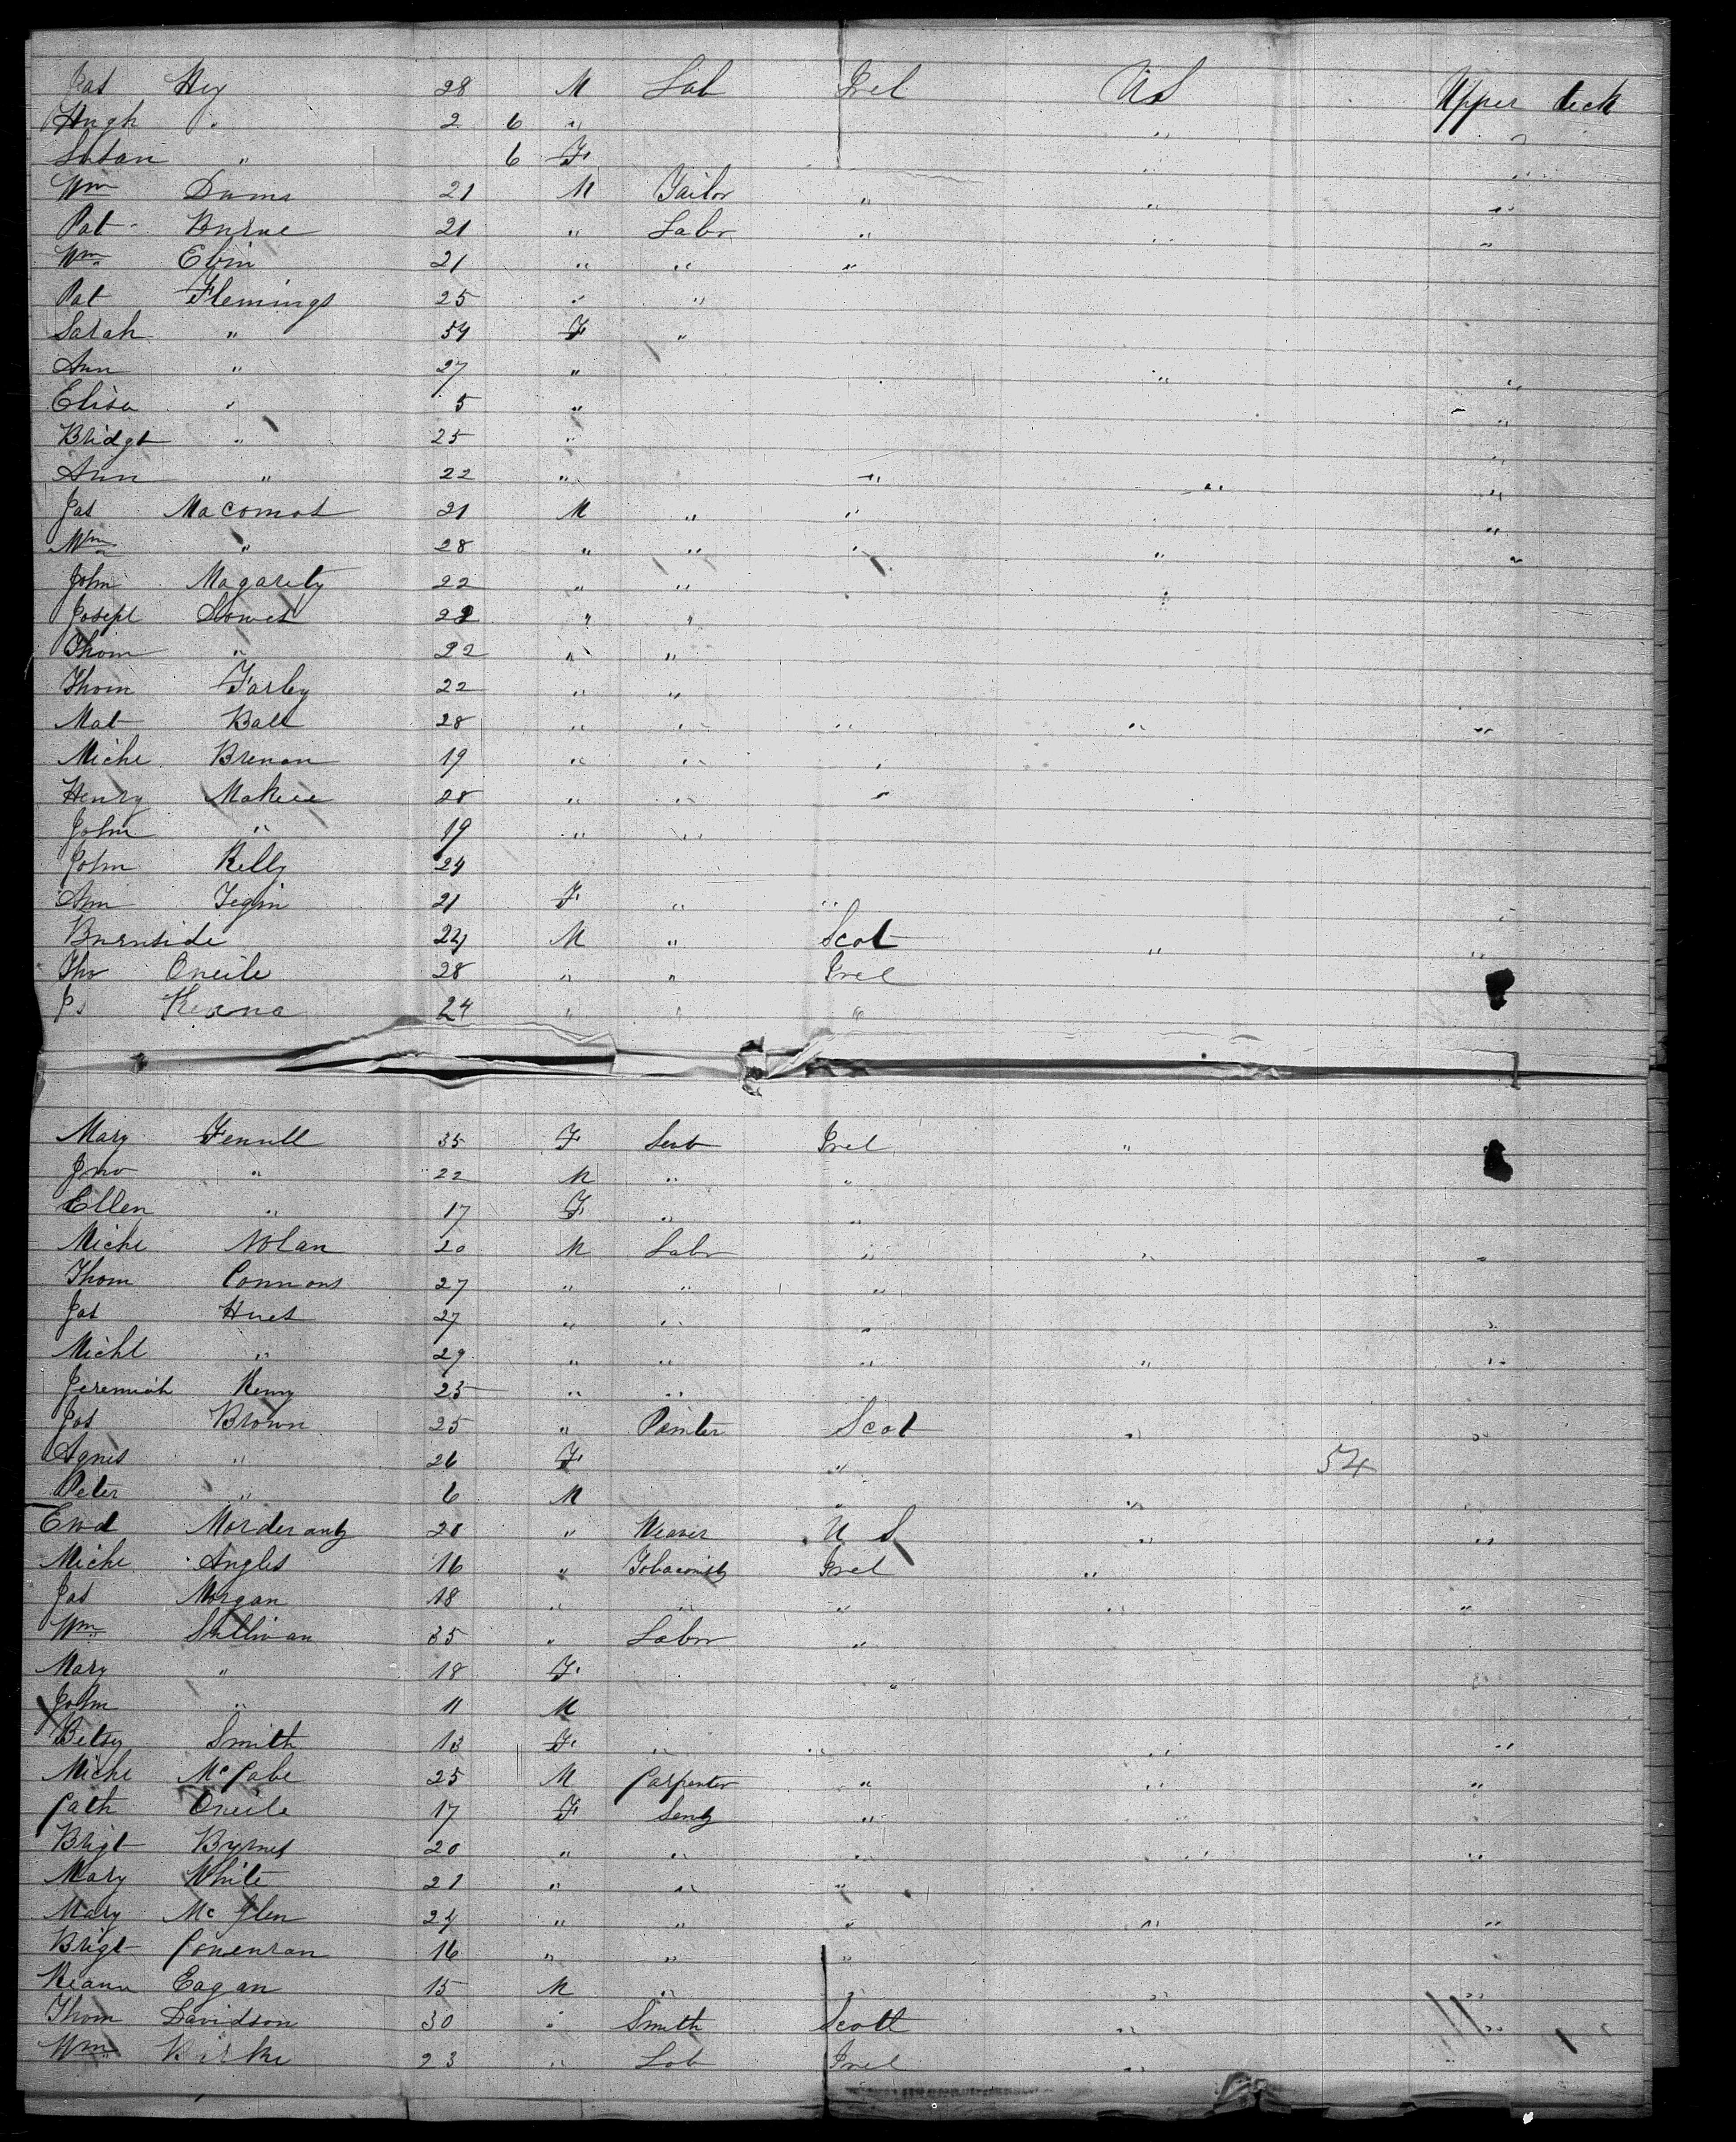 Jas Hey 28 M Lab Irel US Upper deck
Hugh " 2 6 " " "
Susan " 6 F " "
Wm Dums 21 M Tailor " " "
Pat Burne 21 " Labr " " "
Wm Elvin 21 " " "
Pat Flemings 25 " "
Sarah " 54 F "
Ann " 27 " " "
Elisa " 5 " "
Bridgt " 25 " "
Ann " 22 " " " "
Jas Macomas 21 M " " "
Wm " 28 " " " " "
John Magarety 22 " "
Joseph Lowes 22 " "
Thom " 22 " "
Thom Farley 22 " "
Mat Ball 28 " " " " "
Miche Brenan 19 " " "
Henry Makeee 28 " " "
John " 19 " "
John Kelly 24
Ann Tegin 21 F " "
Burnside 24 M " Scot " "
Tho Oneile 28 " " Irel
Js Keana 24 " " "
Mary Fennell 35 F Serv Irel "
Jno " 22 M " "
Ellen " 17 F " "
Miche Nolan 20 M Labr " " "
Thom Connons 27 " " "
Jas Hues 27 " " " "
Michl " 29 " " " " "
Jeremiah Kenny 25 " "
Jas Brown 25 " Painter Scot " "
Agnes " 26 F " 54
Peter " 6 M " "
Ewd Morderanty 28 " Weaver U S " "
Miche Angles 16 " Tobaconist Irel "
Jas Morgan 18 " " " " "
Wm Sullivan 35 " Labr "
Mary " 18 F "
John " 11 M
Betsy Smith 13 F " " " "
Miche McCabe 25 M Carpenter " " "
Cath Oneile 17 F Servt "
Brigt Byrnes 20 " " " " "
Mary White 21 " " "
Mary Mc Glen 24 " " " " "
Brigt Conenran 16 " " "
Keann Eagan 15 M " " " "
Thom Davidson 30 " Smith Scott " "
Wm Birke 23 " Lab Irel "